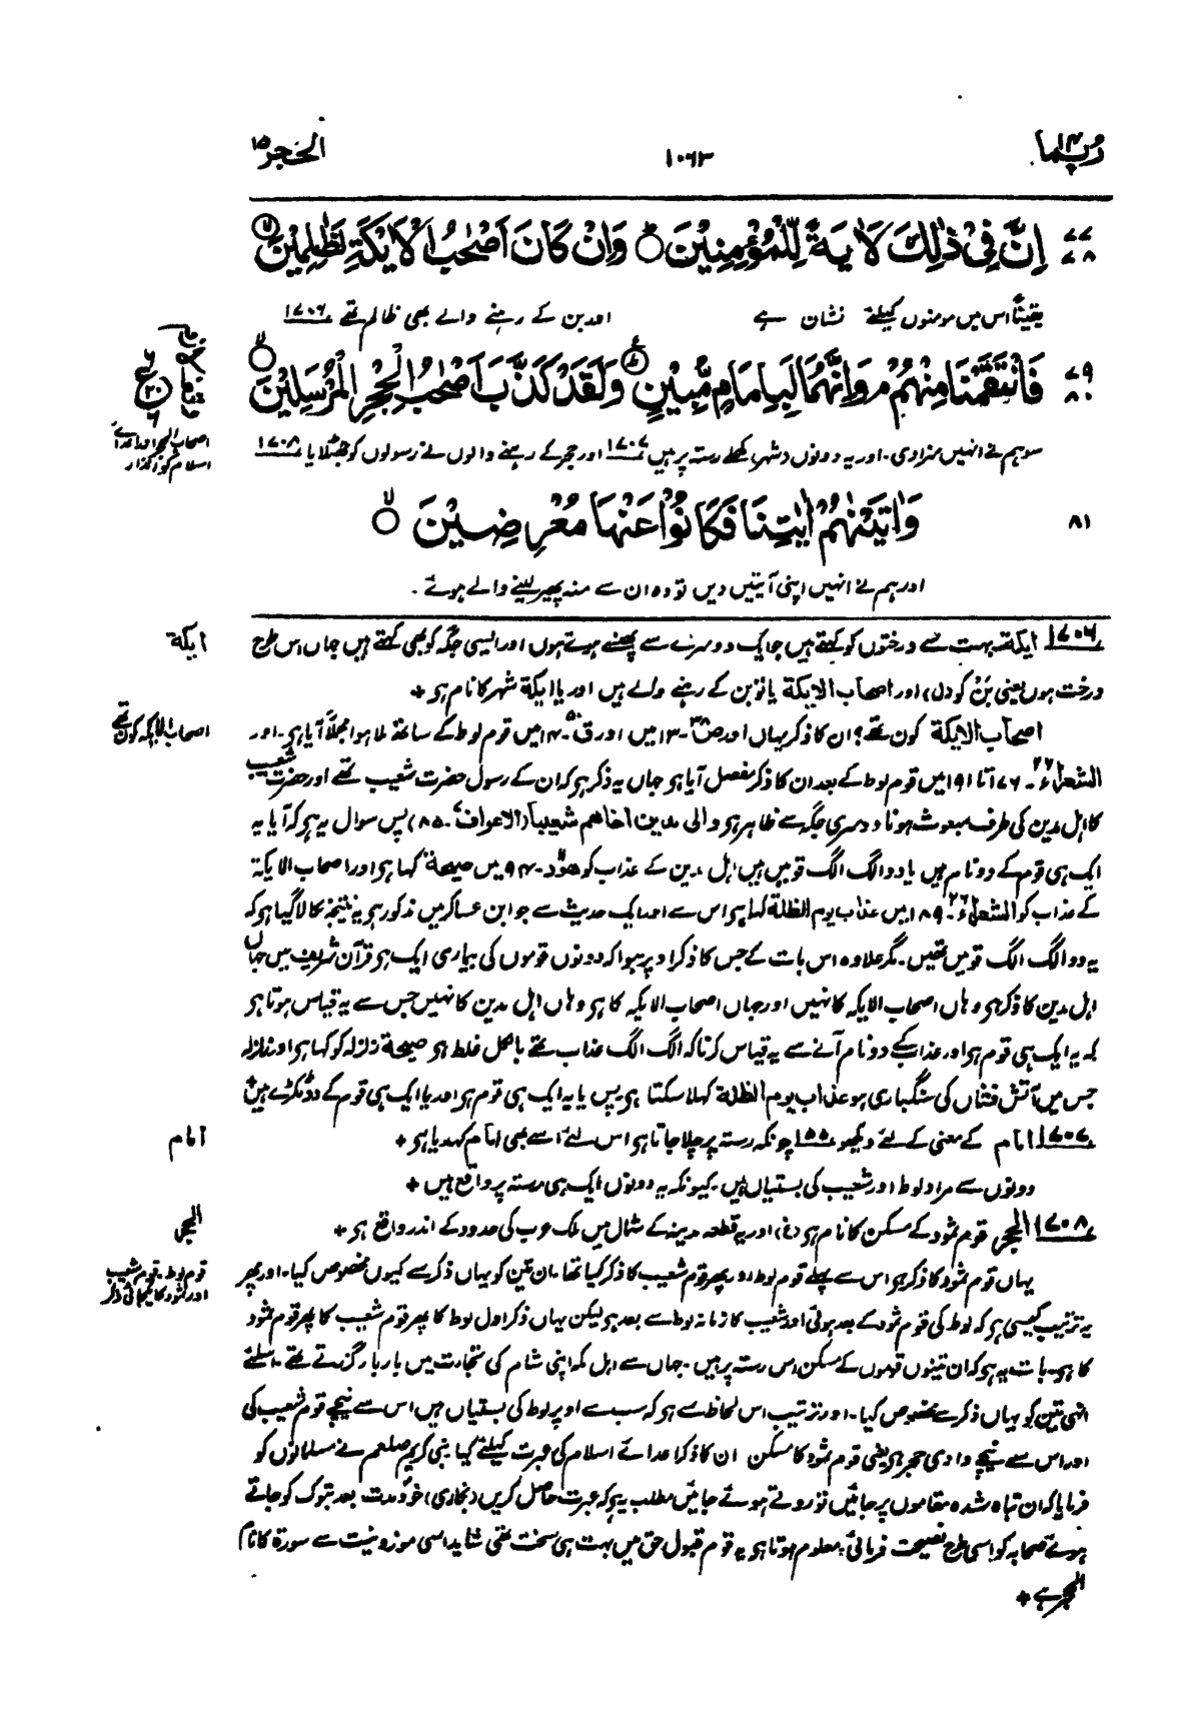 ربما ١٤
١٠٦٣
الحجر ١٥
٧٧ ٧٨ اِنَّ فِيْ ذٰلِكَ لَاٰيَةً لِّلْمُؤْمِنِيْنَ ؕ وَاِنْ كَانَ اَصْحٰبُ الْاَيْكَةِ لَظٰلِمِيْنَ ۙ
یقیناً اس میں مومنوں کیلئے نشان ہے اور بن کے رہنے والے بھی ظالم تھے ١٧٠٦
٧٩ ٨٠ فَانْتَقَمْنَا مِنْهُمْ ۘ وَاِنَّهُمَا لَبِاِمَامٍ مُّبِيْنٍ ؕ وَلَقَدْ كَذَّبَ اَصْحٰبُ الْحِجْرِ الْمُرْسَلِيْنَ ۙ
سو ہم نے انہیں سزا دی۔ اور یہ دونوں (شہر) کھلے رستہ پر ہیں ١٧٠٧ اور حجر کے رہنے والوں نے رسولوں کو جھٹلایا ١٧٠٨
اصحاب الحجر اور اعدائے
اسلام کو انذار
٨١ وَاٰتَيْنٰهُمْ اٰيٰتِنَا فَكَانُوْا عَنْهَا مُعْرِضِيْنَ ۙ
اور ہم نے انہیں اپنی آیتیں دیں تو وہ ان سے منہ پھیر لینے والے ہوئے۔
ایکة
١٧٠٦ ایکة۔ بہت سے درختوں کو کہتے ہیں جو ایک دوسرے سے پھنسے ہوتے ہوں اور ایسی جگہ کو بھی کہتے ہیں جہاں اس طرح
درخت ہوں یعنی بَنْ کو (ل)، اور اصحاب الایکة یا تو بن کے رہنے والے ہیں اور یا ایکة شہر کا نام ہو +
اصحاب الایکہ کون تھے
اصحاب الایکة کون تھے؟ ان کا ذکر یہاں اور صٓ ٣٨۔١٣ میں اور قٓ ٥٠۔١٤ میں قوم لوط کے ساتھ ملا ہوا مجملاً آیا ہو۔ اور
الشعراء ٢٦۔ ١٧٦ تا ١٩١ میں قوم لوط کے بعد ان کا ذکر مفصل آیا ہو جہاں یہ ذکر ہو کہ ان کے رسول حضرت شعیب تھے اور حضرت شعیب
کا اہل مدین کی طرف مبعوث ہونا دوسری جگہ سے ظاہر ہو والی مدین اخاهم شعیبا (الاعراف ٧۔ ٨٥) پس سوال یہ ہو کہ آیا یہ
ایک ہی قوم کے دو نام ہیں یا دو الگ الگ قومیں ہیں اہل مدین کے عذاب کو ھود ۔٩٤ میں صیحة کہا ہو اور اصحاب الایکة
کے عذاب کو الشعراء ٢٦۔ ١٨٩ میں عذاب یوم الظلة کہا ہو اس سے اور ایک حدیث سے جو ابن عساکر میں مذکور ہو یہ نتیجہ نکالا گیا ہو کہ
یہ دو الگ الگ قومیں تھیں۔ مگر علاوہ اس بات کے جس کا ذکر اوپر ہوا کہ دونوں قوموں کی بیماری ایک ہو قرآن شریف میں جہاں
اہل مدین کا ذکر ہو وہاں اصحاب الایکہ کا نہیں اور جہاں اصحاب الایکہ کا ہو وہاں اہل مدین کا نہیں جس سے یہ قیاس ہوتا ہو
کہ یہ ایک ہی قوم ہو اور عذاب کے دو نام آنے سے یہ قیاس کرنا کہ الگ الگ عذاب تھے بالکل غلط ہو صیحة زلزلہ کو کہا ہو اور زلزلہ
جس میں آتش فشاں کی سنگباری ہو عذاب یوم الظلة کہلا سکتا ہو پس یا یہ ایک ہی قوم ہو اور یا ایک ہی قوم کے دو ٹکڑے ہیں +
امام
١٧٠٧ امام کے معنی کے لئے دیکھو ١٥٥ چونکہ رستہ پر چلا جاتا ہو اس لئے اسے بھی امام کہہ دیا ہو +
دونوں سے مراد لوط اور شعیب کی بستیاں ہیں کیونکہ یہ دونوں ایک ہی رستہ پر واقع ہیں +
الحجر
١٧٠٨ الحجر قوم ثمود کے مسکن کا نام ہو (غ) اور یہ قطعہ مدینہ کے شمال میں ملک عرب کی حدود کے اندر واقع ہو +
قوم لوط۔ قوم شعیب
اور ثمود کا یکجائی ذکر
یہاں قوم ثمود کا ذکر ہو اس سے پہلے قوم لوط اور پھر قوم شعیب کا ذکر کیا تھا۔ ان تین کو یہاں ذکر سے کیوں مخصوص کیا۔ اور پھر
یہ ترتیب کیسی ہو کہ لوط کی قوم ثمود کے بعد ہوئی اور شعیب کا زمانہ لوط سے بعد ہو لیکن یہاں ذکر اول لوط کا پھر قوم شعیب کا پھر قوم ثمود
کا ہو۔ بات یہ ہو کہ ان تینوں قوموں کے مسکن اس رستہ پر ہیں۔ جہاں سے اہل مکہ اپنی شام کی تجارت میں بار بار گزرتے تھے۔ اسلئے
انہی تین کو یہاں ذکر سے مخصوص کیا۔ اور ترتیب اس لحاظ سے ہو کہ سب سے اوپر لوط کی بستیاں ہیں اس سے نیچے قوم شعیب کی
اور اس سے نیچے وادی حجر ہو یعنی قوم ثمود کا مسکن ان کا ذکر اعدائے اسلام کی عبرت کیلئے کیا۔ نبی کریم صلعم نے مسلمانوں کو
فرمایا کہ ان تباہ شدہ مقاموں پر جائیں تو روتے ہوئے جائیں مطلب یہ ہو کہ عبرت حاصل کریں (بخاری) خود مدت بعد تبوک کو جاتے
ہوئے صحابہ کو اسی طرح نصیحت فرمائی۔ معلوم ہوتا ہو یہ قوم قبول حق میں بہت ہی سخت تھی شاید اسی موزونیت سے سورة کا نام
الحجر ہے +